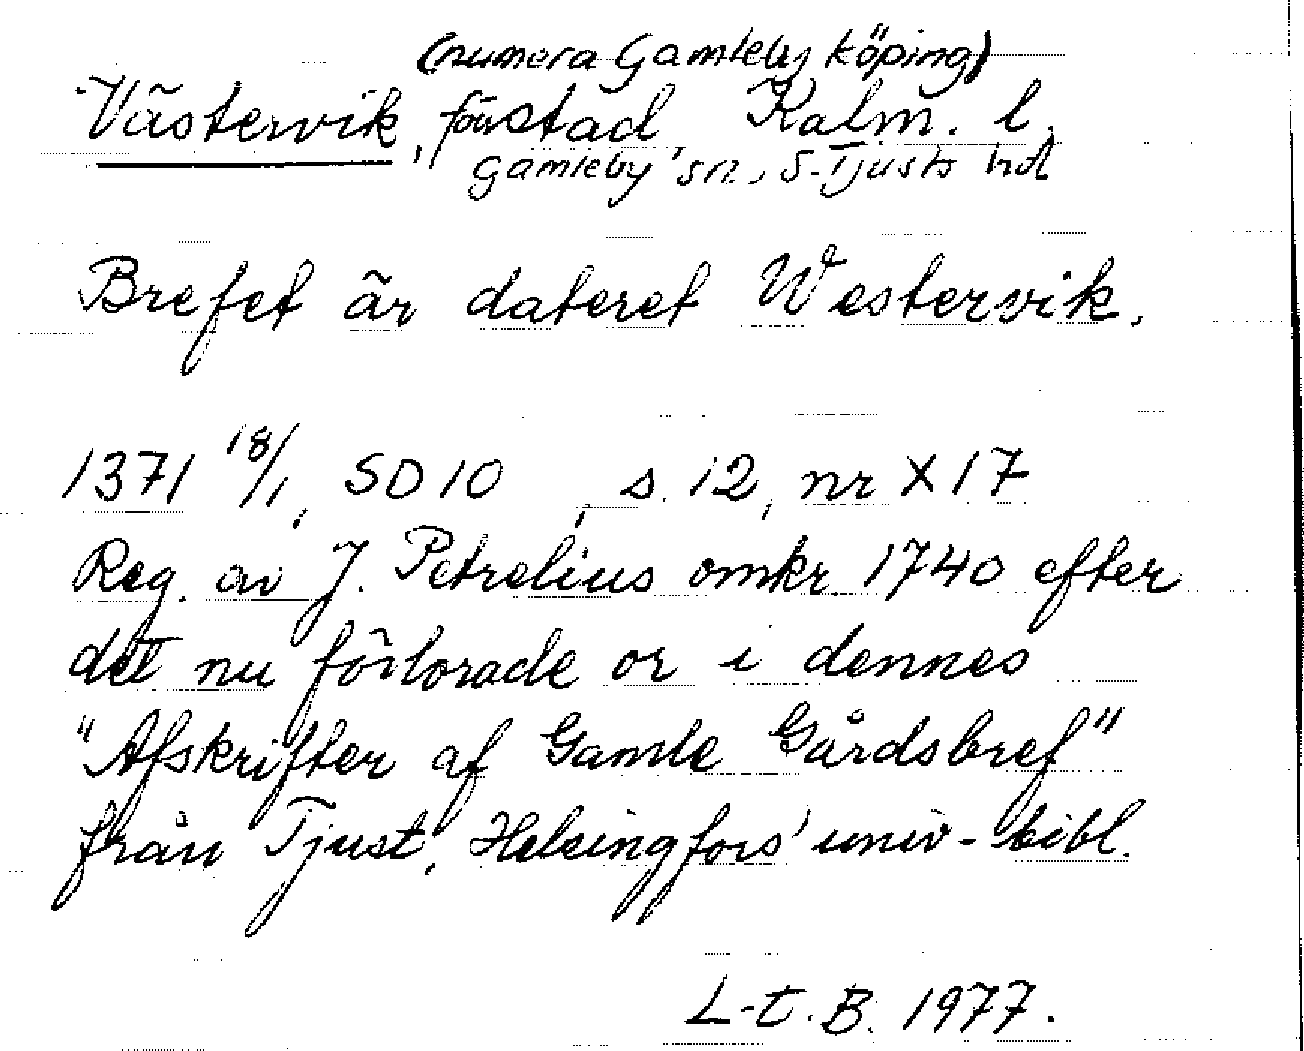 (numera Gamleby köping)
Västervik, förr stad, Kalm. l.
Gamleby sn, S. Tjusts hd
Brefet är dateret Westervik.
1371 18/1, SD 10, s. 12, nr X 17
Reg. av J. Petrelius omkr. 1740 efter
det nu förlorade or i dennes
"Afskrifter af Gamle Gårdsbref"
från Tjust, Helsingfors' univ-bibl.
L-t. B. 1977.